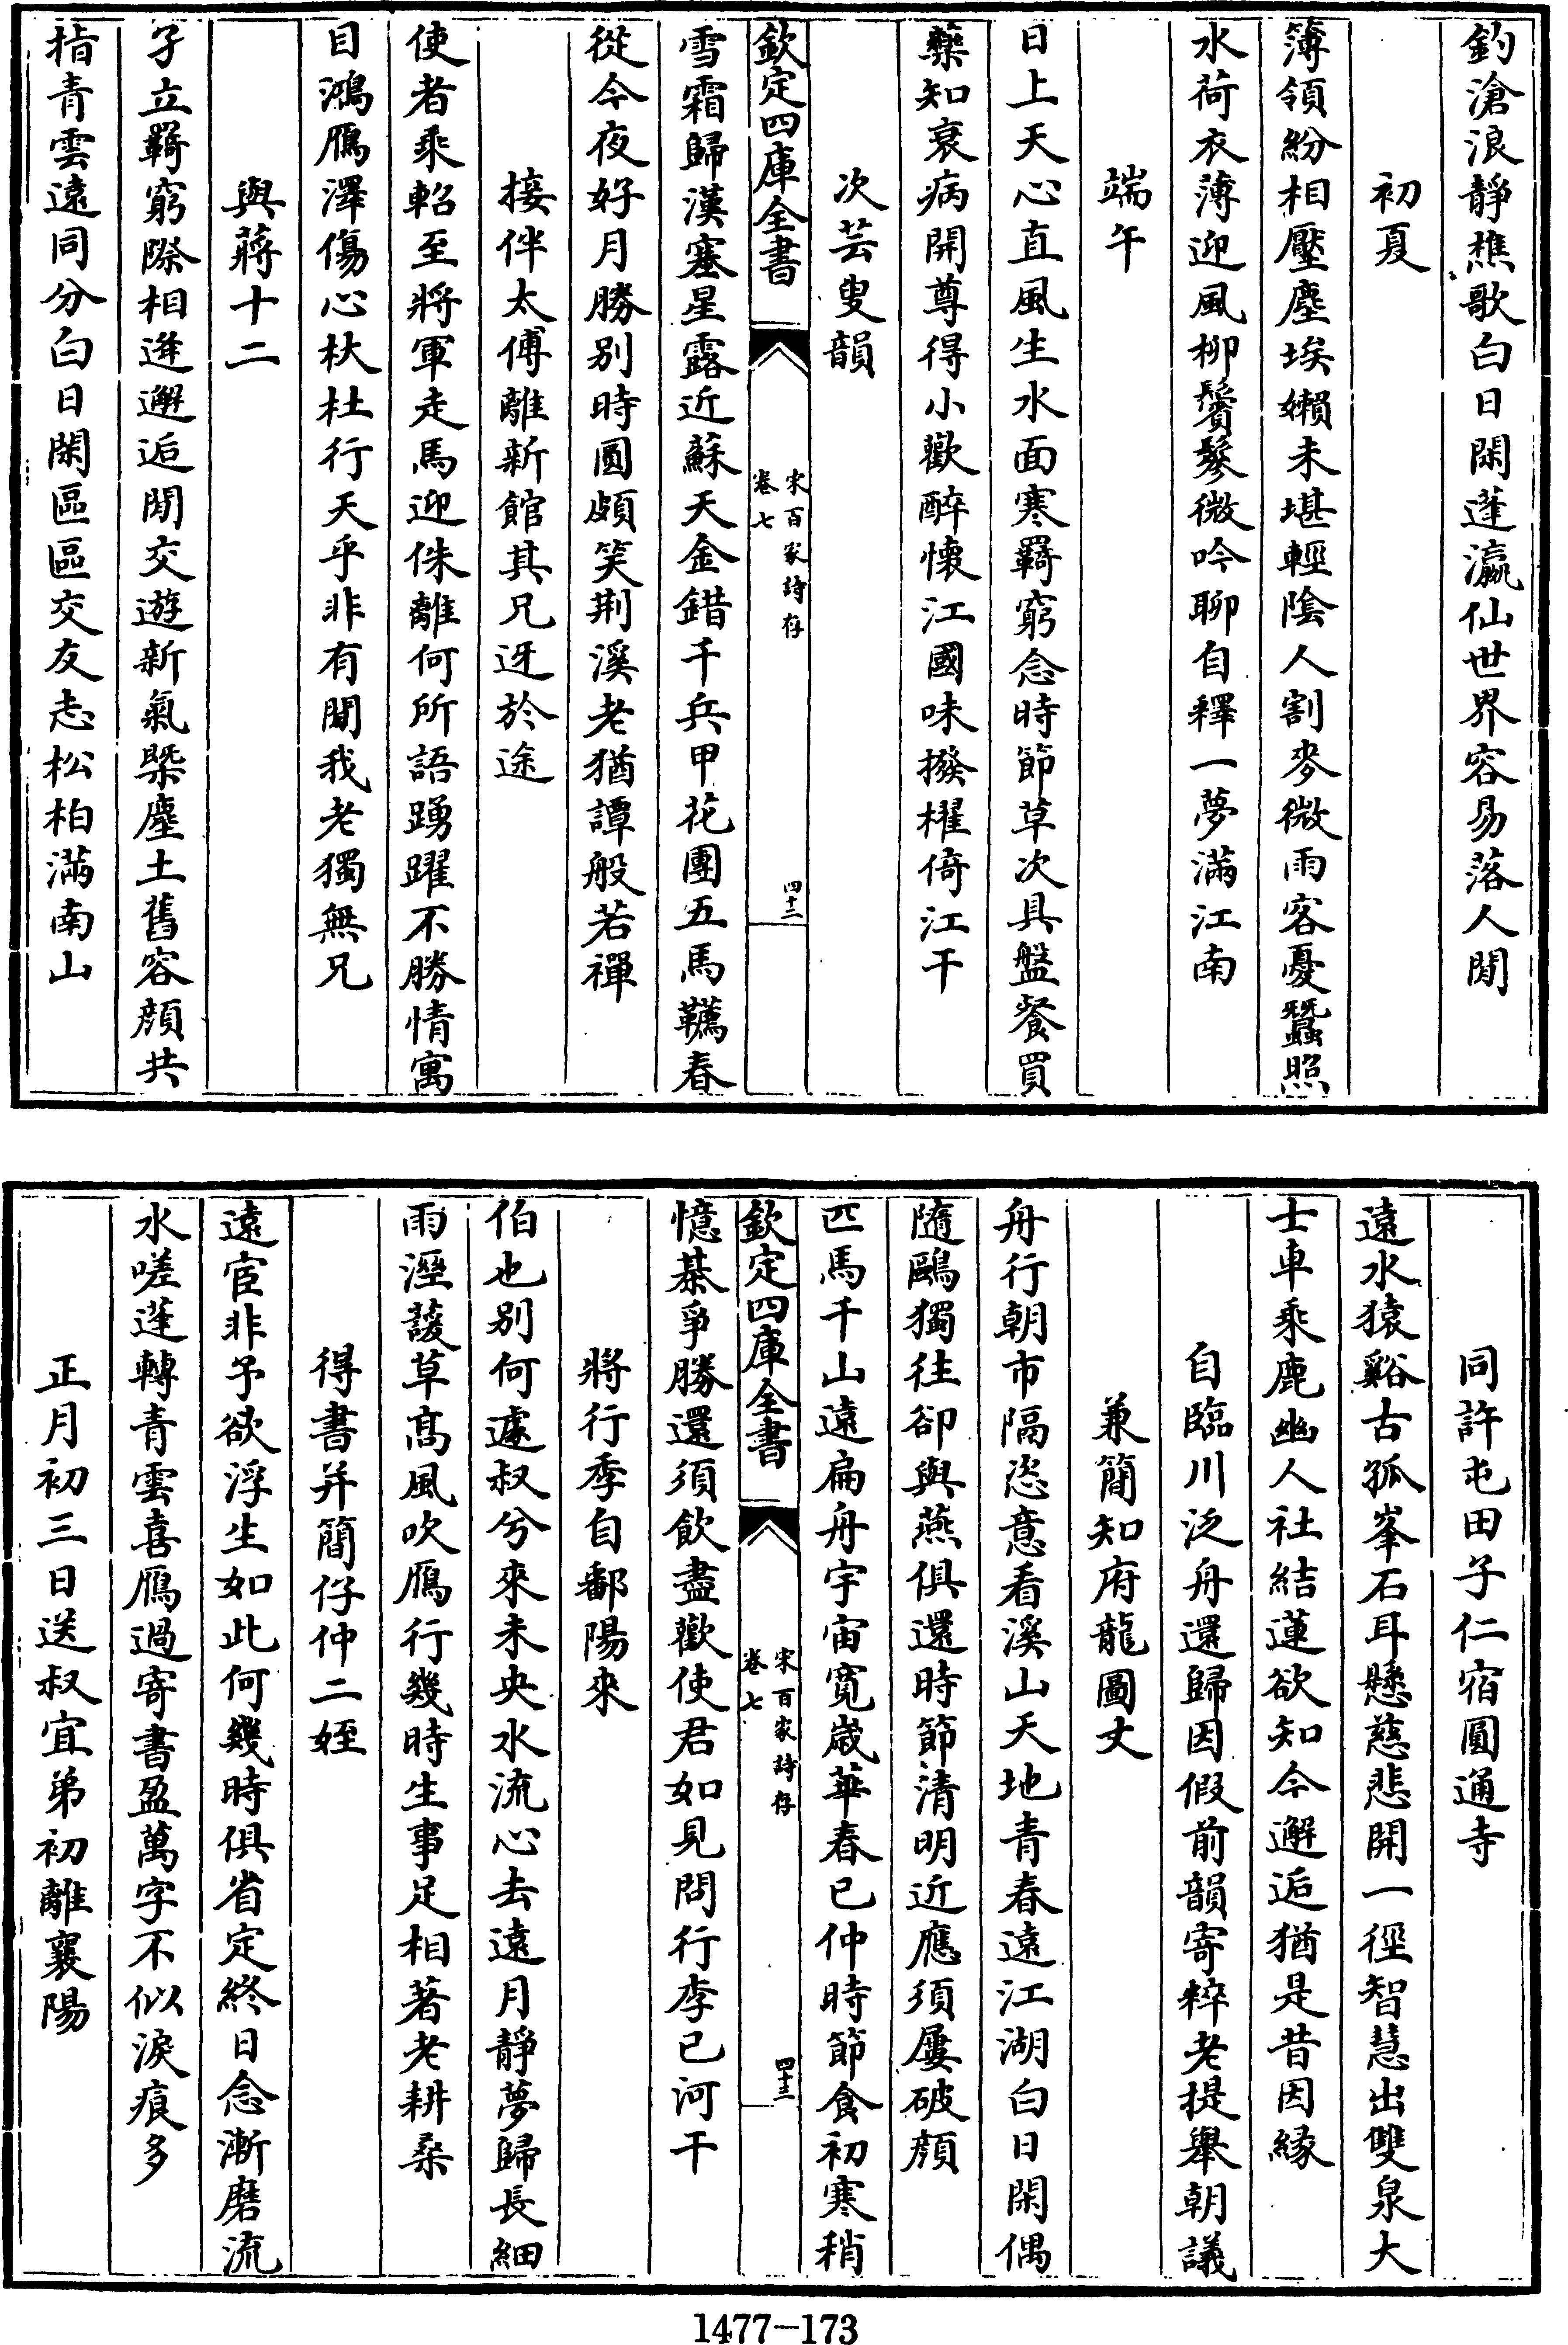 釣滄浪靜樵歌白日閑蓬瀛仙世界容易落人閒
初夏
簿領紛相壓塵埃嬾未堪輕陰人割麥微雨客憂蠶照
水荷衣薄迎風柳鬢鬖微吟聊自釋一夢滿江南
端午
日上天心直風生水面寒羇窮念時節草次具盤餐買
藥知衰病開尊得小歡醉懷江國味撥櫂倚江干
次芸叟韻
欽定四庫全書
宋百家詩存
卷七
四十二
雪霜歸漢塞星露近蘇天金錯千兵甲花團五馬韉春
從今夜好月勝別時圓頗笑荆溪老猶譚般若禪
接伴太傅離新館其兄迓於途
使者乘軺至將軍走馬迎侏離何所語踴躍不勝情寓
目鴻鴈澤傷心杕杜行天乎非有閒我老獨無兄
與蔣十二
孑立羇窮際相逢邂逅閒交遊新氣槩塵土舊容顔共
指青雲遠同分白日閑區區交友志松柏滿南山
同許屯田子仁宿圓通寺
遠水猿谿古孤峯石耳懸慈悲開一徑智慧出雙泉大
士車乘鹿幽人社結蓮欲知今邂逅猶是昔因緣
自臨川泛舟還歸因假前韻寄粹老提舉朝議
兼簡知府龍圖丈
舟行朝市隔恣意看溪山天地青春遠江湖白日閑偶
隨鷗獨往卻與燕俱還時節清明近應須屢破顔
匹馬千山遠扁舟宇宙寛歲華春已仲時節食初寒稍
欽定四庫全書
宋百家詩存
卷七
四十三
憶棊爭勝還須飲盡歡使君如見問行李已河干
將行季自鄱陽來
伯也別何遽叔兮來未央水流心去遠月靜夢歸長細
雨溼蘐草高風吹鴈行幾時生事足相著老耕桑
得書并簡仔仲二姪
遠宦非予欲浮生如此何幾時俱省定終日念漸磨流
水嗟蓬轉青雲喜鴈過寄書盈萬字不似淚痕多
正月初三日送叔宜弟初離襄陽
1477-173